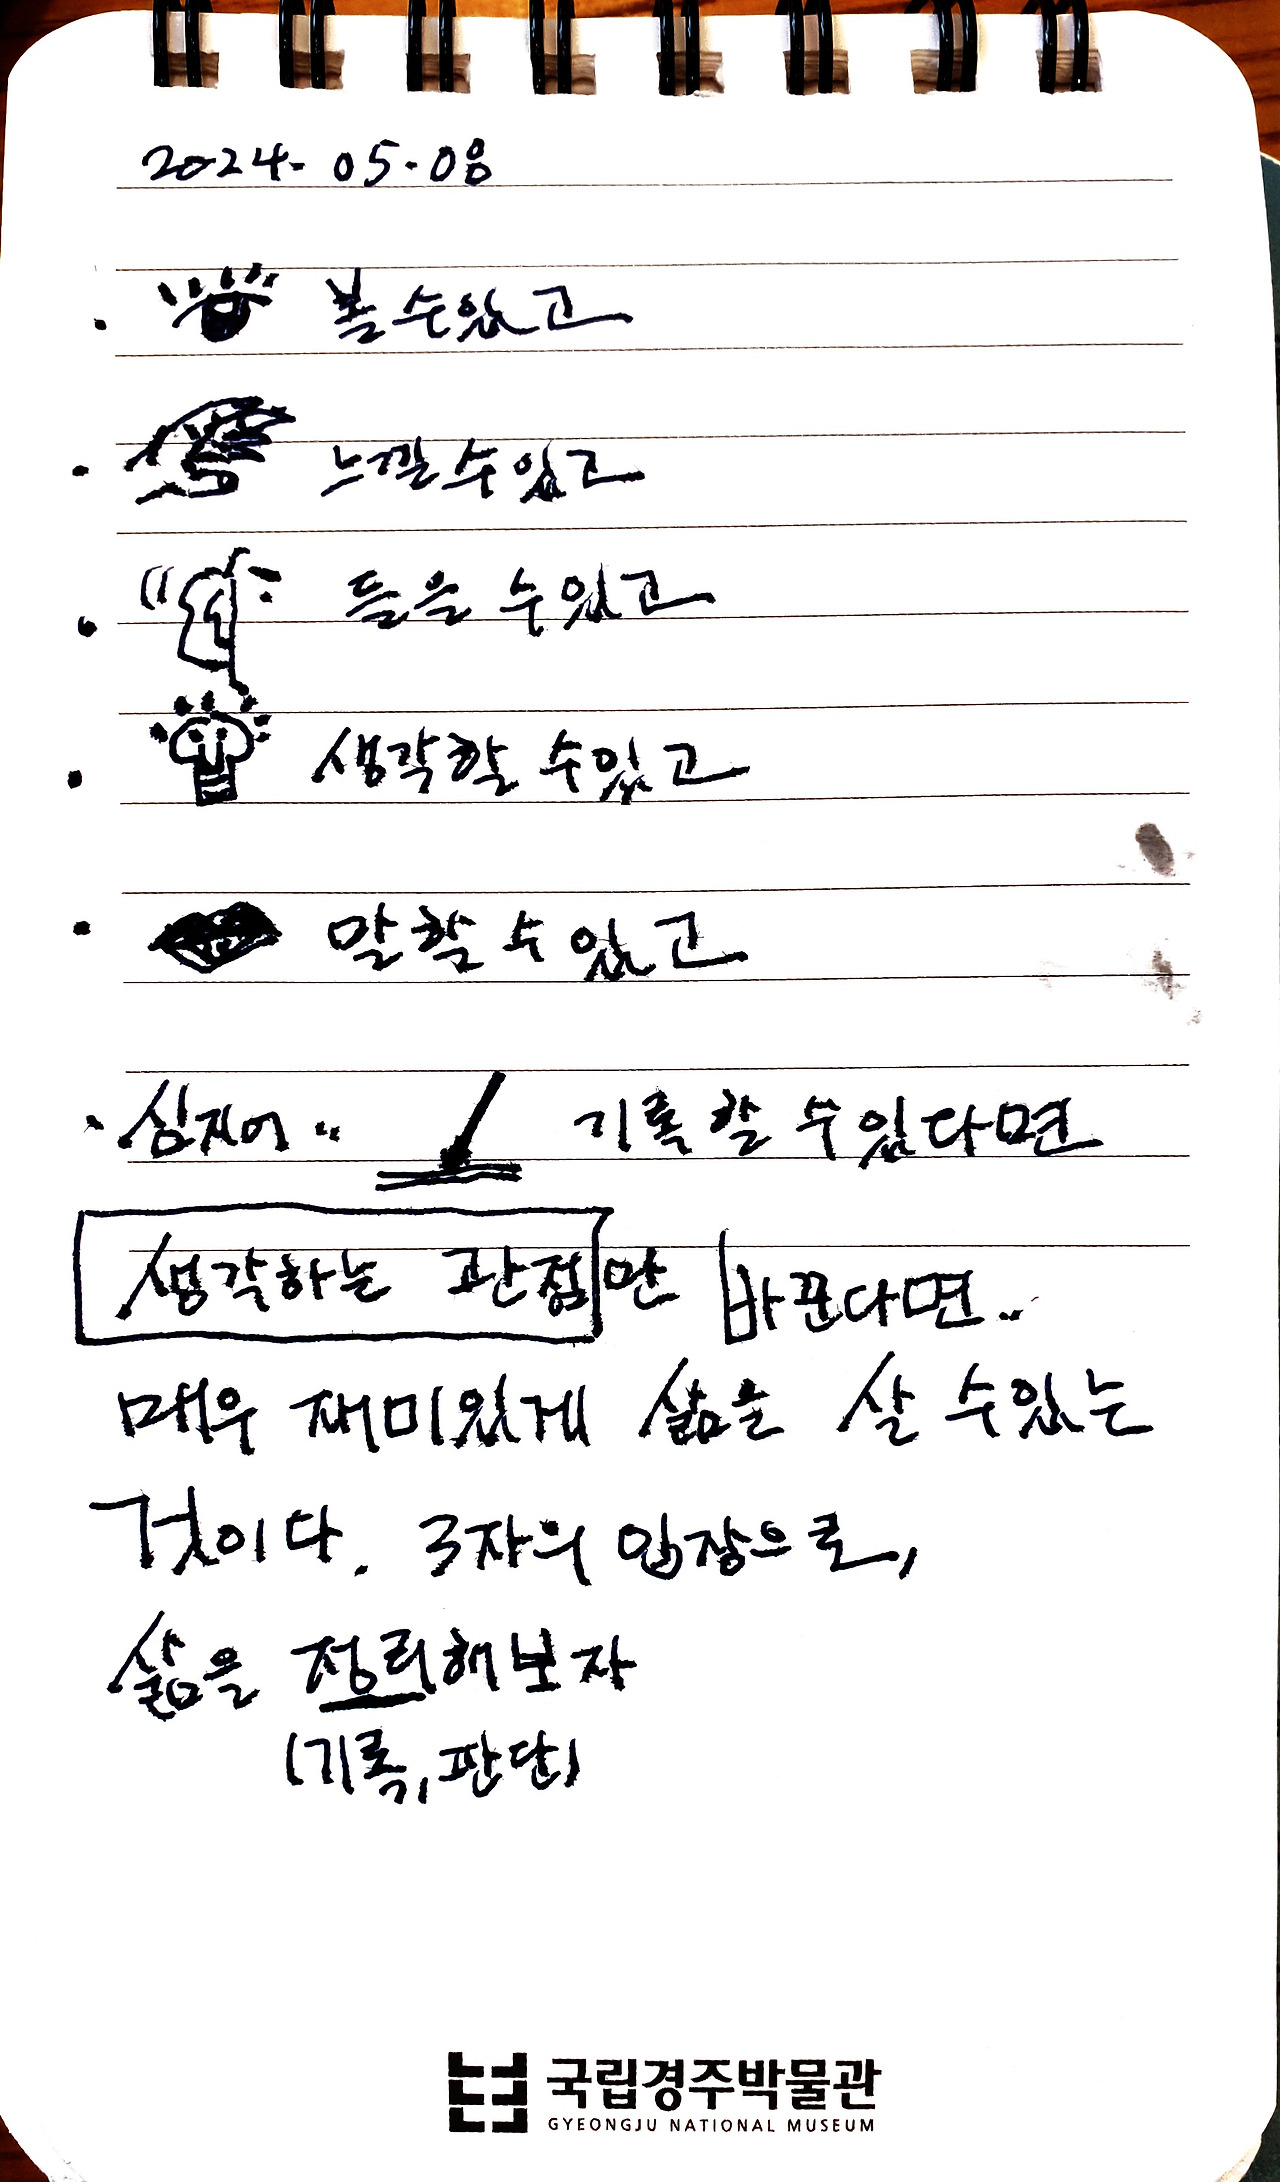 2024. 05. 08
· 볼 수 있고
· 느낄 수 있고
· 들을 수 있고
· 생각할 수 있고
· 말할 수 있고
· 심지어.. 기록할 수 있다면
생각하는 관점만 바꾼다면..
매우 재미있게 삶을 살 수 있는
것이다. 3자의 입장으로,
삶을 정리해보자
(기록, 판단)
국립경주박물관
GYEONGJU NATIONAL MUSEUM